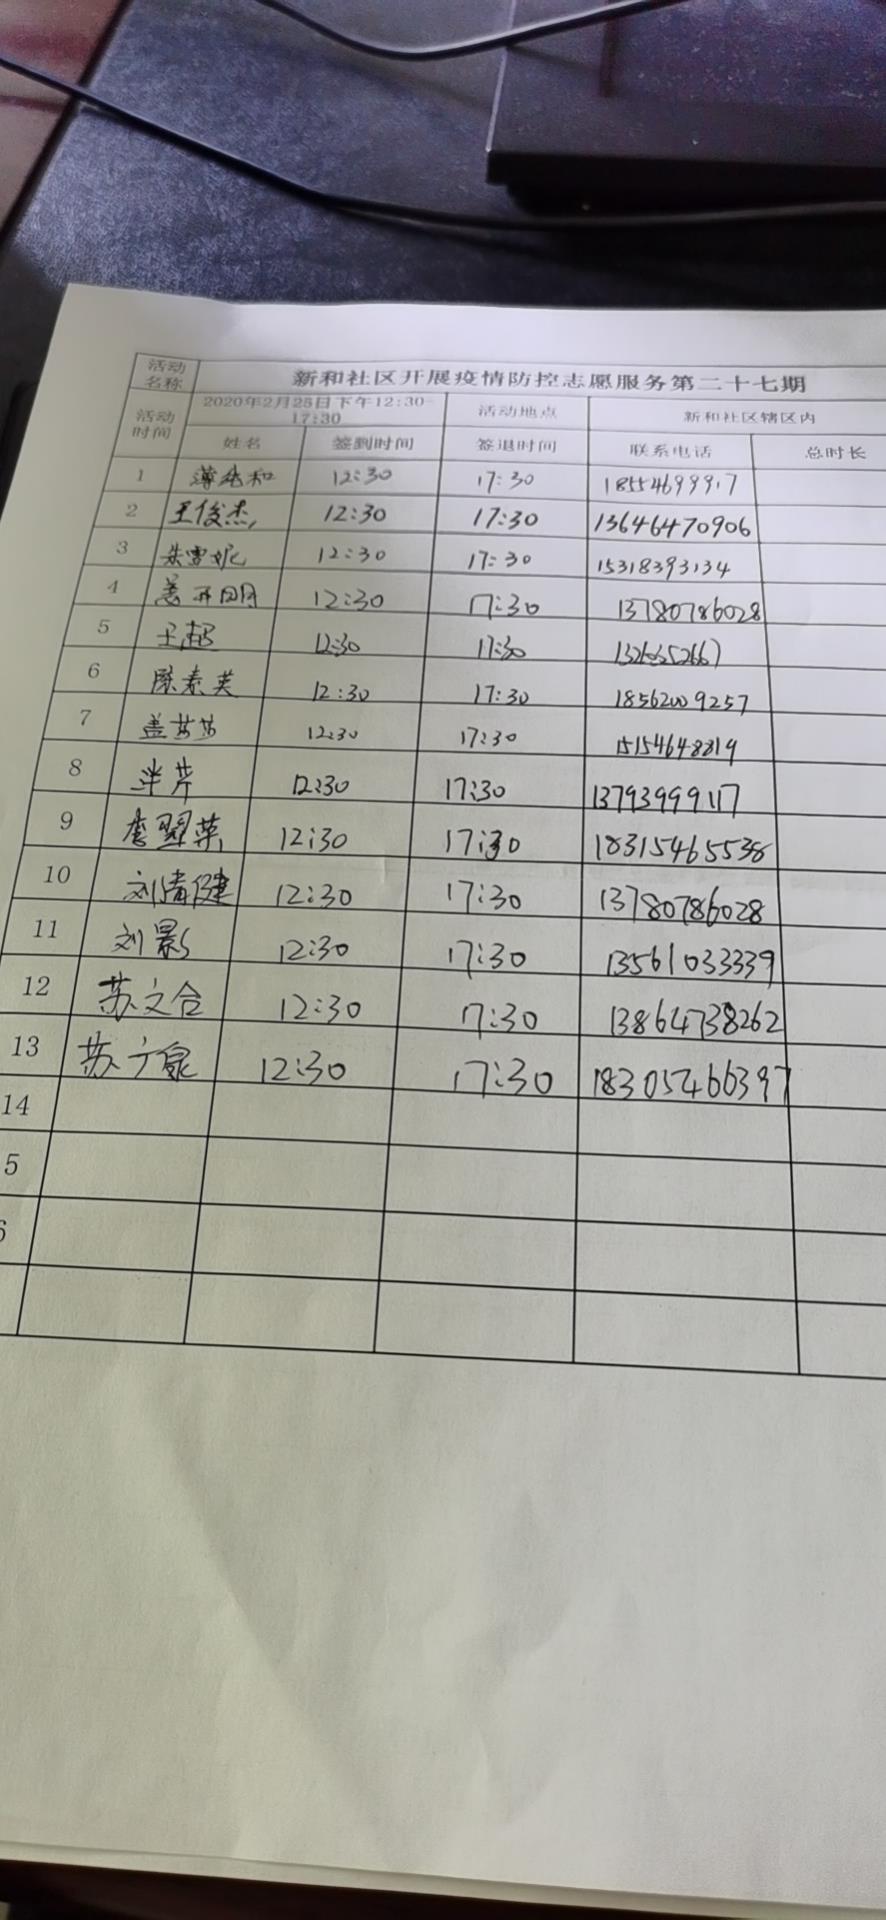 活动名称 新和社区开展疫情防控志愿服务第二十七期
活动时间 2020年2月25日下午12:30-17:30 活动地点 新和社区辖区内
姓名 签到时间 签退时间 联系电话 总时长
1 薄纯和 12:30 17:30 18554699917
2 王俊杰 12:30 17:30 13646470906
3 朱雪妮 12:30 17:30 15318393134
4 12:30 17:30 13780786028
5 王超 12:30 17:30
6 陈素英 12:30 17:30 18562009257
7 盖芳芳 12:30 17:30 15154648819
8 12:30 17:30 13793999117
9 李翠荣 12:30 17:30 18315465538
10 刘清健 12:30 17:30 13780786028
11 刘影 12:30 17:30 13561033339
12 苏文合 12:30 17:30 13864738262
13 苏 12:30 17:30 18305466397
14
5
6